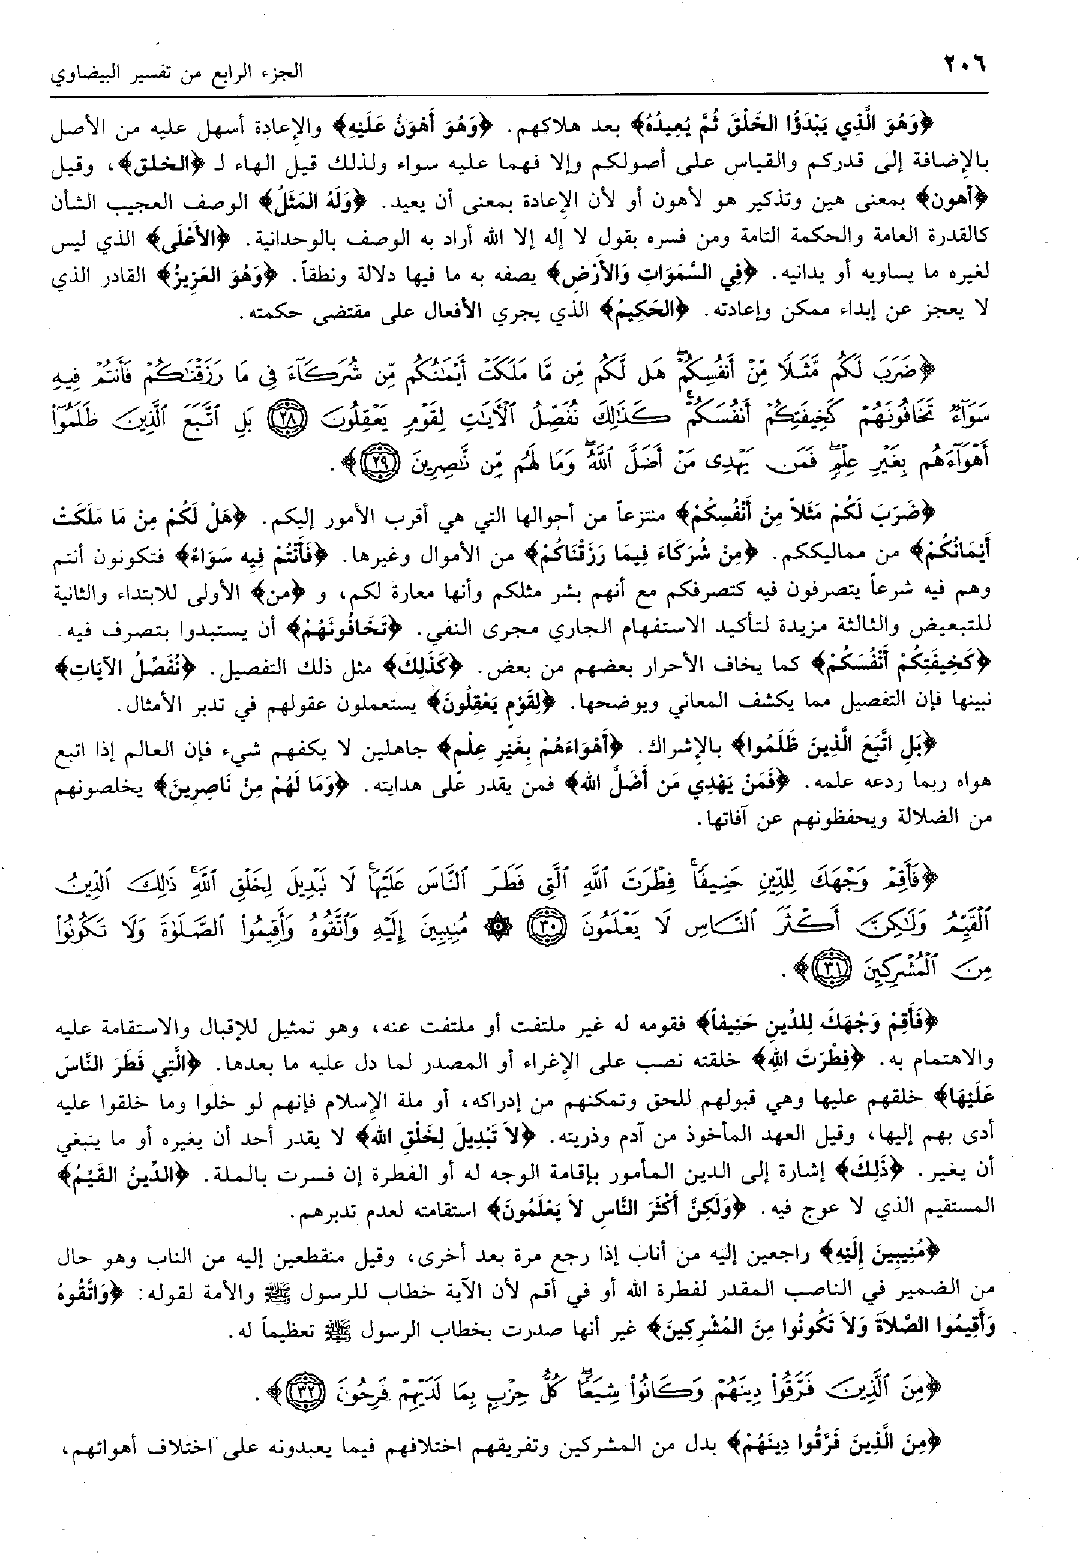 ٢٠٦
الجزء الرابع من تفسير البيضاوي
﴿وَهُوَ الَّذِي يَبْدَؤُا الخَلْقَ ثُمَّ يُعِيدُهُ﴾ بعد هلاكهم. ﴿وَهُوَ أَهْوَنُ عَلَيْهِ﴾ والإعادة أسهل عليه من الأصل
بالإضافة إلى قدركم والقياس على أصولكم وإلا فهما عليه سواء ولذلك قيل الهاء لـ ﴿الخلق﴾، وقيل
﴿أهون﴾ بمعنى هين وتذكير هو لأهون أو لأن الإعادة بمعنى أن يعيد. ﴿وَلَهُ المَثَلُ﴾ الوصف العجيب الشأن
كالقدرة العامة والحكمة التامة ومن فسره بقول لا إله إلا الله أراد به الوصف بالوحدانية. ﴿الأَعْلَى﴾ الذي ليس
لغيره ما يساويه أو يدانيه. ﴿فِي السَّمَوَاتِ وَالأَرْضِ﴾ يصفه به ما فيها دلالة ونطقاً. ﴿وَهُوَ العَزِيزُ﴾ القادر الذي
لا يعجز عن إبداء ممكن وإعادته. ﴿الحَكِيمُ﴾ الذي يجري الأفعال على مقتضى حكمته.
﴿ضَرَبَ لَكُم مَّثَلًا مِّنْ أَنفُسِكُمْ ۖ هَل لَّكُم مِّن مَّا مَلَكَتْ أَيْمَٰنُكُم مِّن شُرَكَآءَ فِى مَا رَزَقْنَٰكُمْ فَأَنتُمْ فِيهِ
سَوَآءٌ تَخَافُونَهُمْ كَخِيفَتِكُمْ أَنفُسَكُمْ ۚ كَذَٰلِكَ نُفَصِّلُ ٱلْأَيَٰتِ لِقَوْمٍ يَعْقِلُونَ ﴿٢٨﴾ بَلِ ٱتَّبَعَ ٱلَّذِينَ ظَلَمُوٓا۟
أَهْوَآءَهُم بِغَيْرِ عِلْمٍ ۖ فَمَن يَهْدِى مَنْ أَضَلَّ ٱللَّهُ ۖ وَمَا لَهُم مِّن نَّٰصِرِينَ ﴿٢٩﴾﴾.
﴿ضَرَبَ لَكُمْ مَثَلاً مِنْ أَنْفُسِكُمْ﴾ منتزعاً من أحوالها التي هي أقرب الأمور إليكم. ﴿هَلْ لَكُمْ مِنْ مَا مَلَكَتْ
أَيْمَانُكُمْ﴾ من مماليككم. ﴿مِنْ شُرَكَاءَ فِيمَا رَزَقْنَاكُمْ﴾ من الأموال وغيرها. ﴿فَأَنْتُمْ فِيهِ سَوَاءٌ﴾ فتكونون أنتم
وهم فيه شرعاً يتصرفون فيه كتصرفكم مع أنهم بشر مثلكم وأنها معارة لكم، و ﴿من﴾ الأولى للابتداء والثانية
للتبعيض والثالثة مزيدة لتأكيد الاستفهام الجاري مجرى النفي. ﴿تَخَافُونَهُمْ﴾ أن يستبدوا بتصرف فيه.
﴿كَخِيفَتِكُمْ أَنْفُسَكُمْ﴾ كما يخاف الأحرار بعضهم من بعض. ﴿كَذَلِكَ﴾ مثل ذلك التفصيل. ﴿نُفَصِّلُ الآيَاتِ﴾
نبينها فإن التفصيل مما يكشف المعاني ويوضحها. ﴿لِقَوْمٍ يَعْقِلُونَ﴾ يستعملون عقولهم في تدبر الأمثال.
﴿بَلِ اتَّبَعَ الَّذِينَ ظَلَمُوا﴾ بالإشراك. ﴿أَهْوَاءَهُمْ بِغَيْرِ عِلْمٍ﴾ جاهلين لا يكفهم شيء فإن العالم إذا اتبع
هواه ربما ردعه علمه. ﴿فَمَنْ يَهْدِي مَن أَضَلَّ الله﴾ فمن يقدر على هدايته. ﴿وَمَا لَهُمْ مِنْ نَاصِرِينَ﴾ يخلصونهم
من الضلالة ويحفظونهم عن آفاتها.
﴿فَأَقِمْ وَجْهَكَ لِلدِّينِ حَنِيفًا ۚ فِطْرَتَ ٱللَّهِ ٱلَّتِى فَطَرَ ٱلنَّاسَ عَلَيْهَا ۚ لَا تَبْدِيلَ لِخَلْقِ ٱللَّهِ ۚ ذَٰلِكَ ٱلدِّينُ
ٱلْقَيِّمُ وَلَٰكِنَّ أَكْثَرَ ٱلنَّاسِ لَا يَعْلَمُونَ ﴿٣٠﴾ ۞ مُنِيبِينَ إِلَيْهِ وَٱتَّقُوهُ وَأَقِيمُوا۟ ٱلصَّلَوٰةَ وَلَا تَكُونُوا۟
مِنَ ٱلْمُشْرِكِينَ ﴿٣١﴾﴾.
﴿فَأَقِمْ وَجْهَكَ لِلدِّينِ حَنِيفاً﴾ فقومه له غير ملتفت أو ملتفت عنه، وهو تمثيل للإقبال والاستقامة عليه
والاهتمام به. ﴿فِطْرَتَ اللهِ﴾ خلقته نصب على الإغراء أو المصدر لما دل عليه ما بعدها. ﴿الَّتِي فَطَرَ النَّاسَ
عَلَيْهَا﴾ خلقهم عليها وهي قبولهم للحق وتمكنهم من إدراكه، أو ملة الإسلام فإنهم لو خلوا وما خلقوا عليه
أدى بهم إليها، وقيل العهد المأخوذ من آدم وذريته. ﴿لاَ تَبْدِيلَ لِخَلْقِ الله﴾ لا يقدر أحد أن يغيره أو ما ينبغي
أن يغير. ﴿ذَلِكَ﴾ إشارة إلى الدين المأمور بإقامة الوجه له أو الفطرة إن فسرت بالملة. ﴿الدِّينُ القَيِّمُ﴾
المستقيم الذي لا عوج فيه. ﴿وَلَكِنَّ أَكْثَرَ النَّاسِ لاَ يَعْلَمُونَ﴾ استقامته لعدم تدبرهم.
﴿مُنِيبِينَ إِلَيْهِ﴾ راجعين إليه من أناب إذا رجع مرة بعد أخرى، وقيل منقطعين إليه من الناب وهو حال
من الضمير في الناصب المقدر لفطرة الله أو في أقم لأن الآية خطاب للرسول ﷺ والأمة لقوله: ﴿وَاتَّقُوهُ
وَأَقِيمُوا الصَّلاَةَ وَلاَ تَكُونُوا مِنَ المُشْرِكِينَ﴾ غير أنها صدرت بخطاب الرسول ﷺ تعظيماً له.
﴿مِنَ ٱلَّذِينَ فَرَّقُوا۟ دِينَهُمْ وَكَانُوا۟ شِيَعًا ۖ كُلُّ حِزْبٍۭ بِمَا لَدَيْهِمْ فَرِحُونَ ﴿٣٢﴾﴾.
﴿مِنَ الَّذِينَ فَرَّقُوا دِينَهُمْ﴾ بدل من المشركين وتفريقهم اختلافهم فيما يعبدونه على اختلاف أهوائهم،